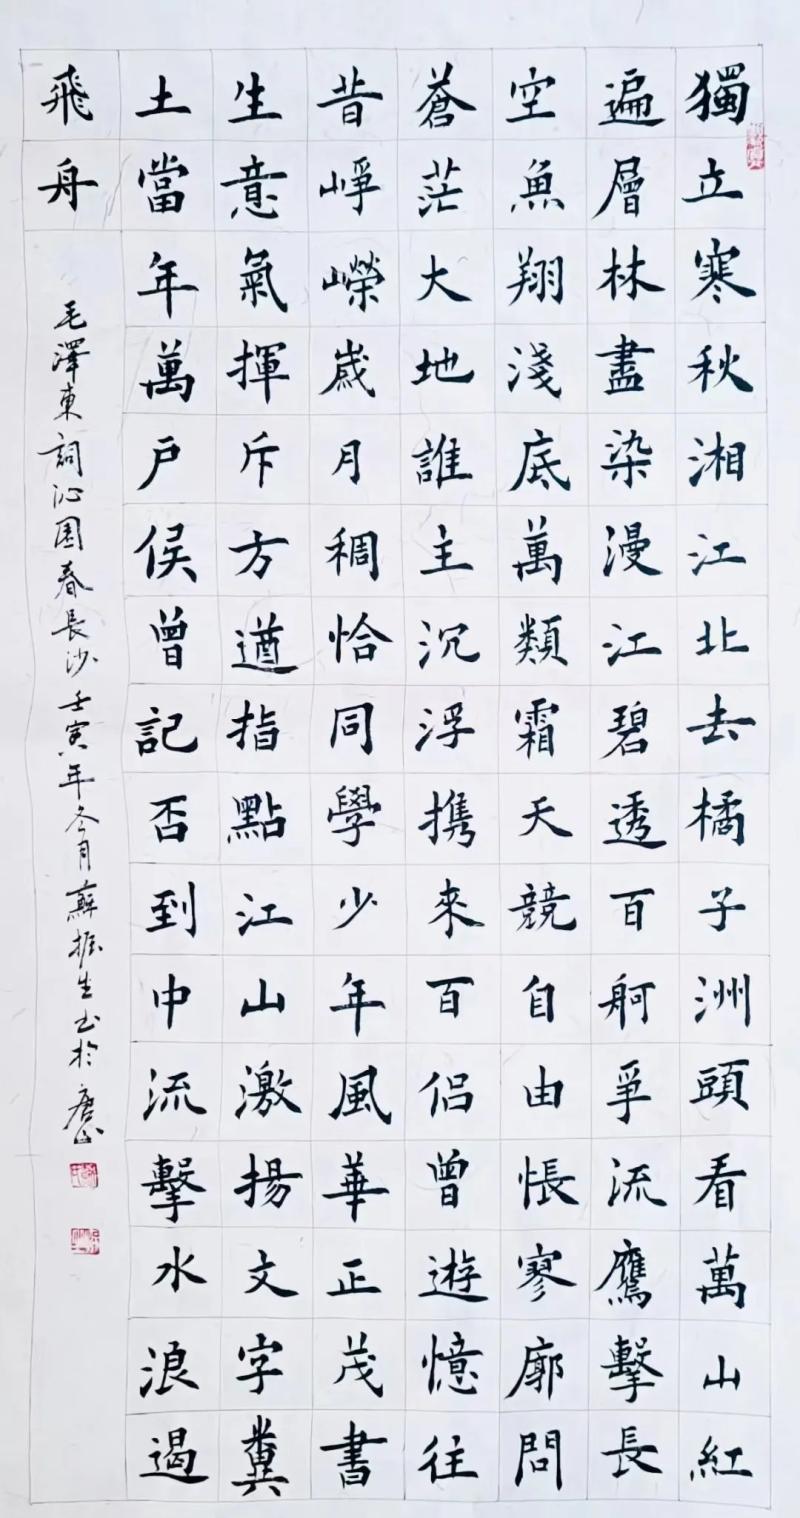 獨立寒秋湘江北去橘子洲頭看萬山紅
遍層林盡染漫江碧透百舸爭流鷹擊長
空魚翔淺底萬類霜天競自由悵寥廓問
蒼茫大地誰主沉浮携來百侶曾遊憶往
昔崢嶸歲月稠恰同學少年風華正茂書
生意氣揮斥方遒指點江山激揚文字糞
土當年萬戶侯曾記否到中流擊水浪遏
飛舟
毛澤東詞沁園春長沙壬寅年冬月蘇振生书於唐山